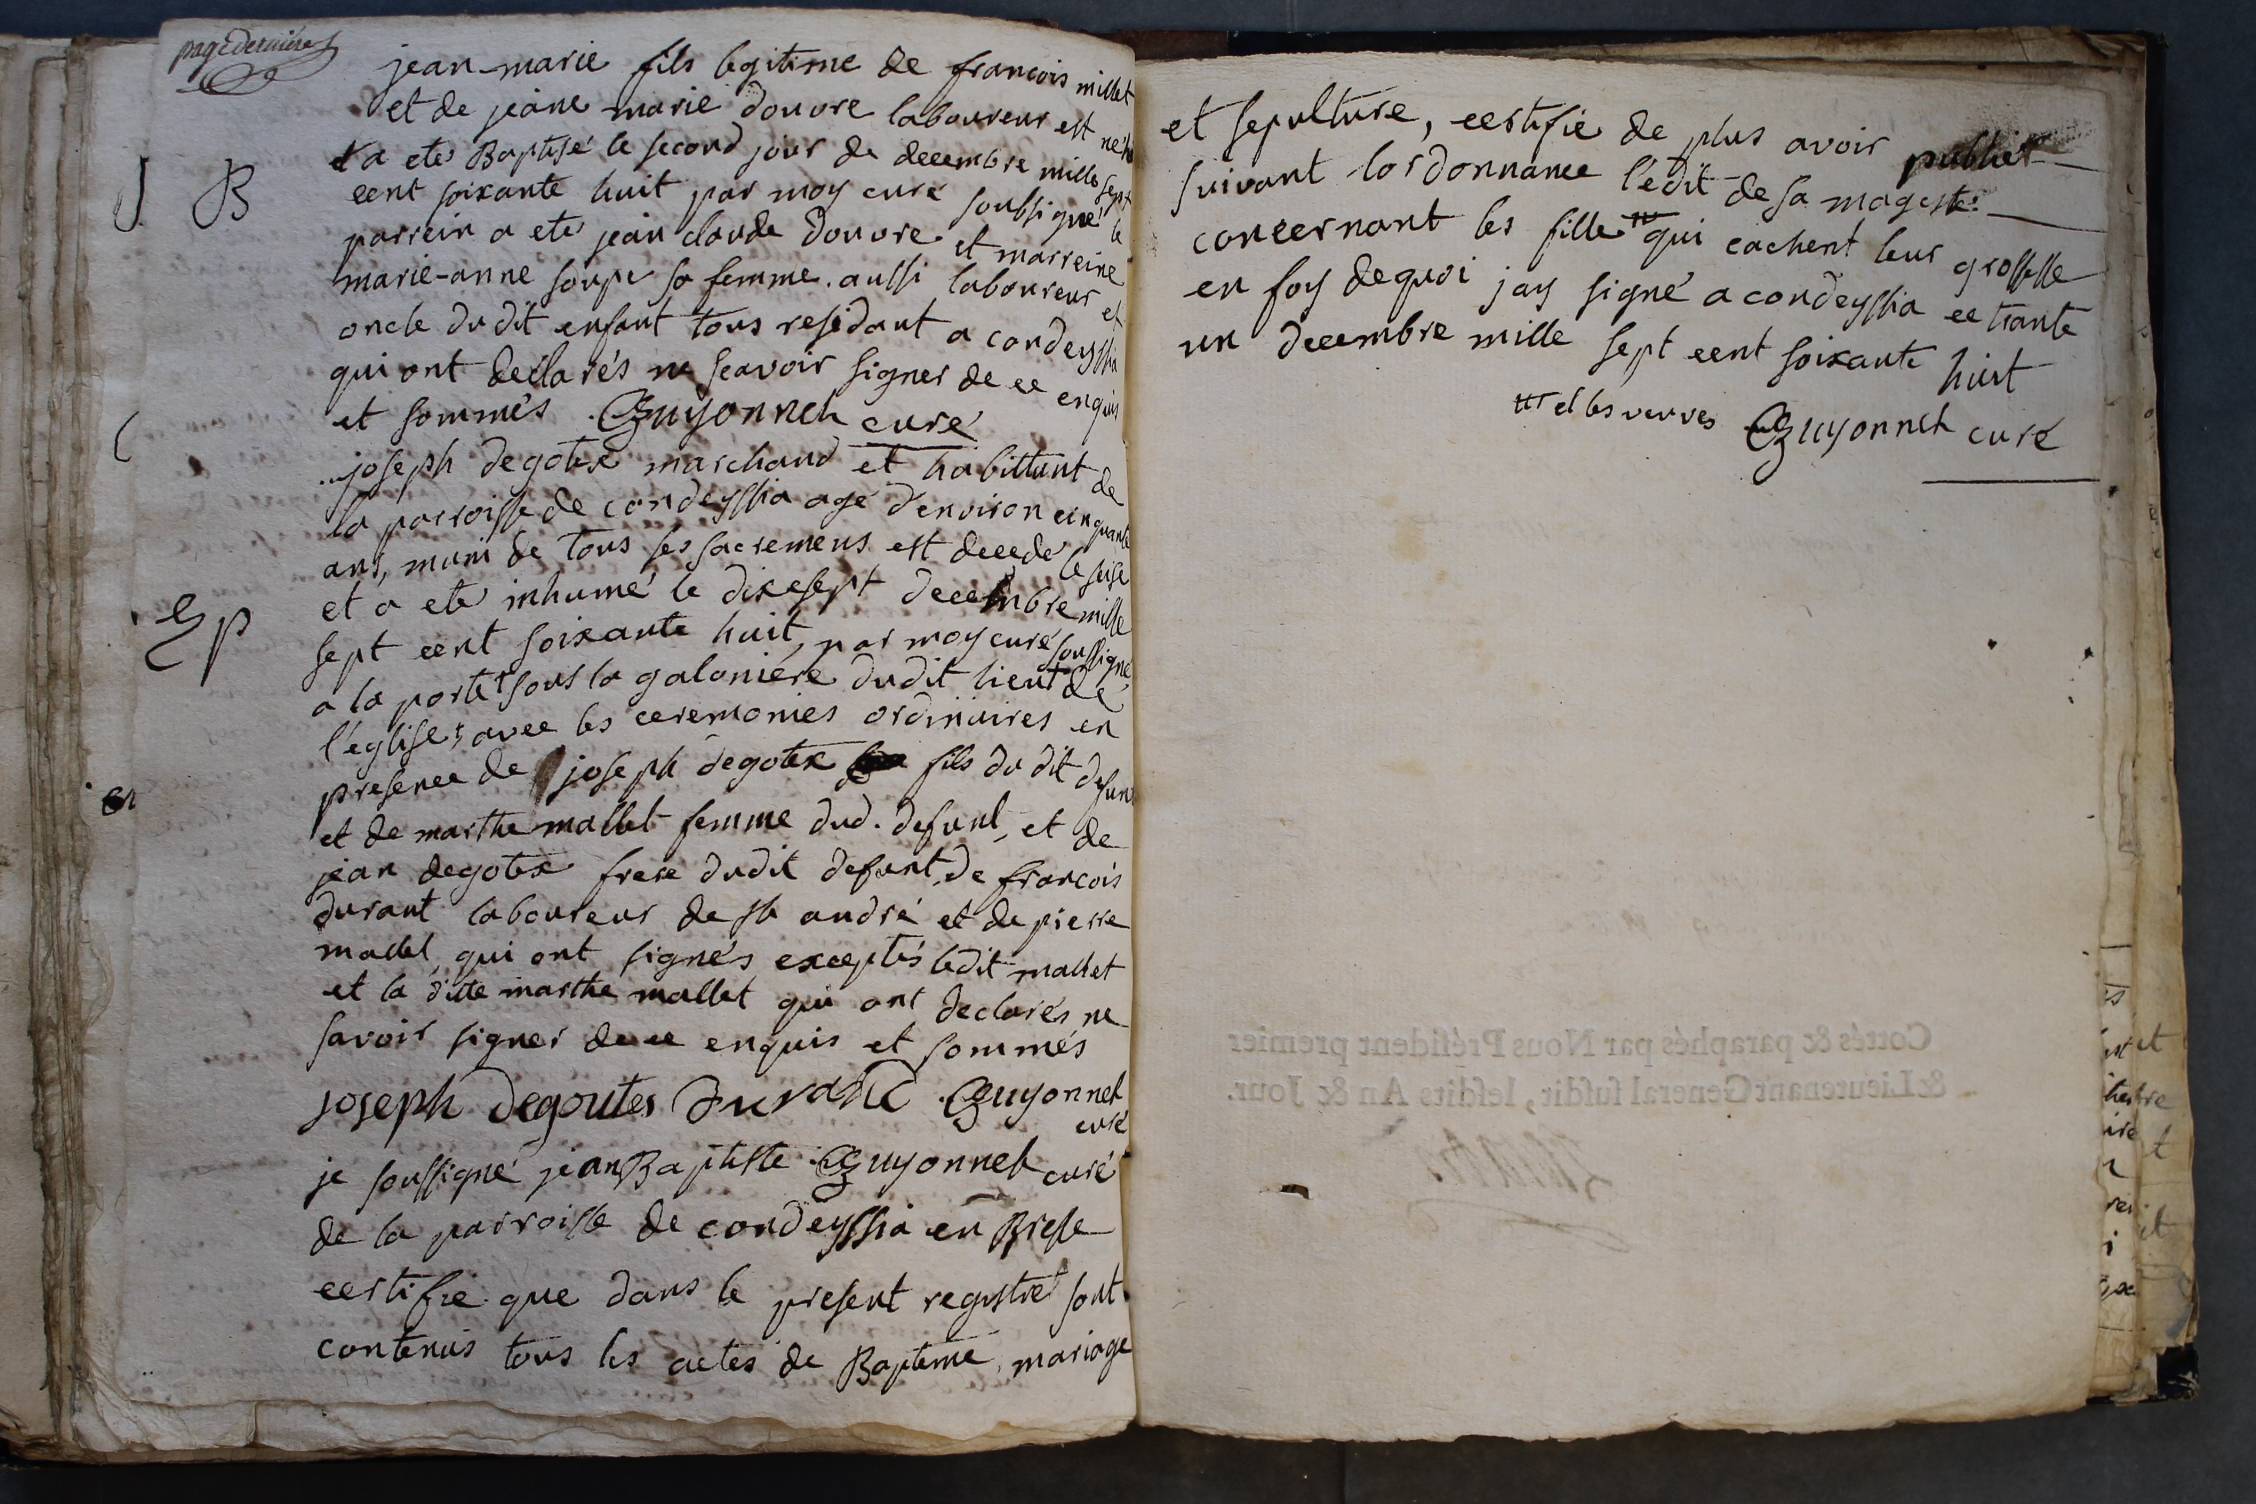 page derniére
jean-marie fils legitime de francois millet
et de jeane marie douvre laboureur est né
et a ete Baptisé le second jour de decembre mille sept
cent soixante huit par moy curé soubsigné le
parrein a ete jean claude douvre et marreine
marie-anne soupe sa femme. aussi laboureur et
oncle dudit enfant tous residant a condeyssia
qui ont declarés ne scavoir signer de ce enquis
et sommés. Guyonnet curé
J B
joseph degotex marchand et habittant de
la parroisse de condeyssia agé d'environ cinquante
ans, muni de tous ses sacremens est decedé le seise
et a ete inhumé le dixesept decembre mille
sept cent soixante huit, par moy curé soussigné,
a la porte sous la galoniére dudit lieu de
l'eglise avec les ceremonies ordinaires en
presence de joseph degotex fils du dit defunt
et de marthe mallet femme dud. defunt, et de
jean degotex frere dudit defunt, de francois
durant laboureur de st andré et de pierre
mallet, qui ont signés exceptés ledit mallet
et la ditte marthe mallet qui ont declarés ne
savoir signer de ce enquis et sommés
joseph degoutes Durand Guyonnet
curé
je soussigné jean Baptiste Guyonnet curé
de la parroisse de condeyssia en Bresse
certifie que dans le present registre sont
contenus tous les actes de Bapteme, mariage
et sepulture, certifie de plus avoir publier
suivant l'ordonnance l'edit de sa mageste
concernant les fille qui cachent leur grossesse
en foy dequoi jay signé a condeyssia ce trante
un decembre mille sept cent soixante huit
et les veuves Guyonnet curé
Cottés & paraphés par Nous Président premier
& Lieutenant General susdit, lesdits An & Jour.